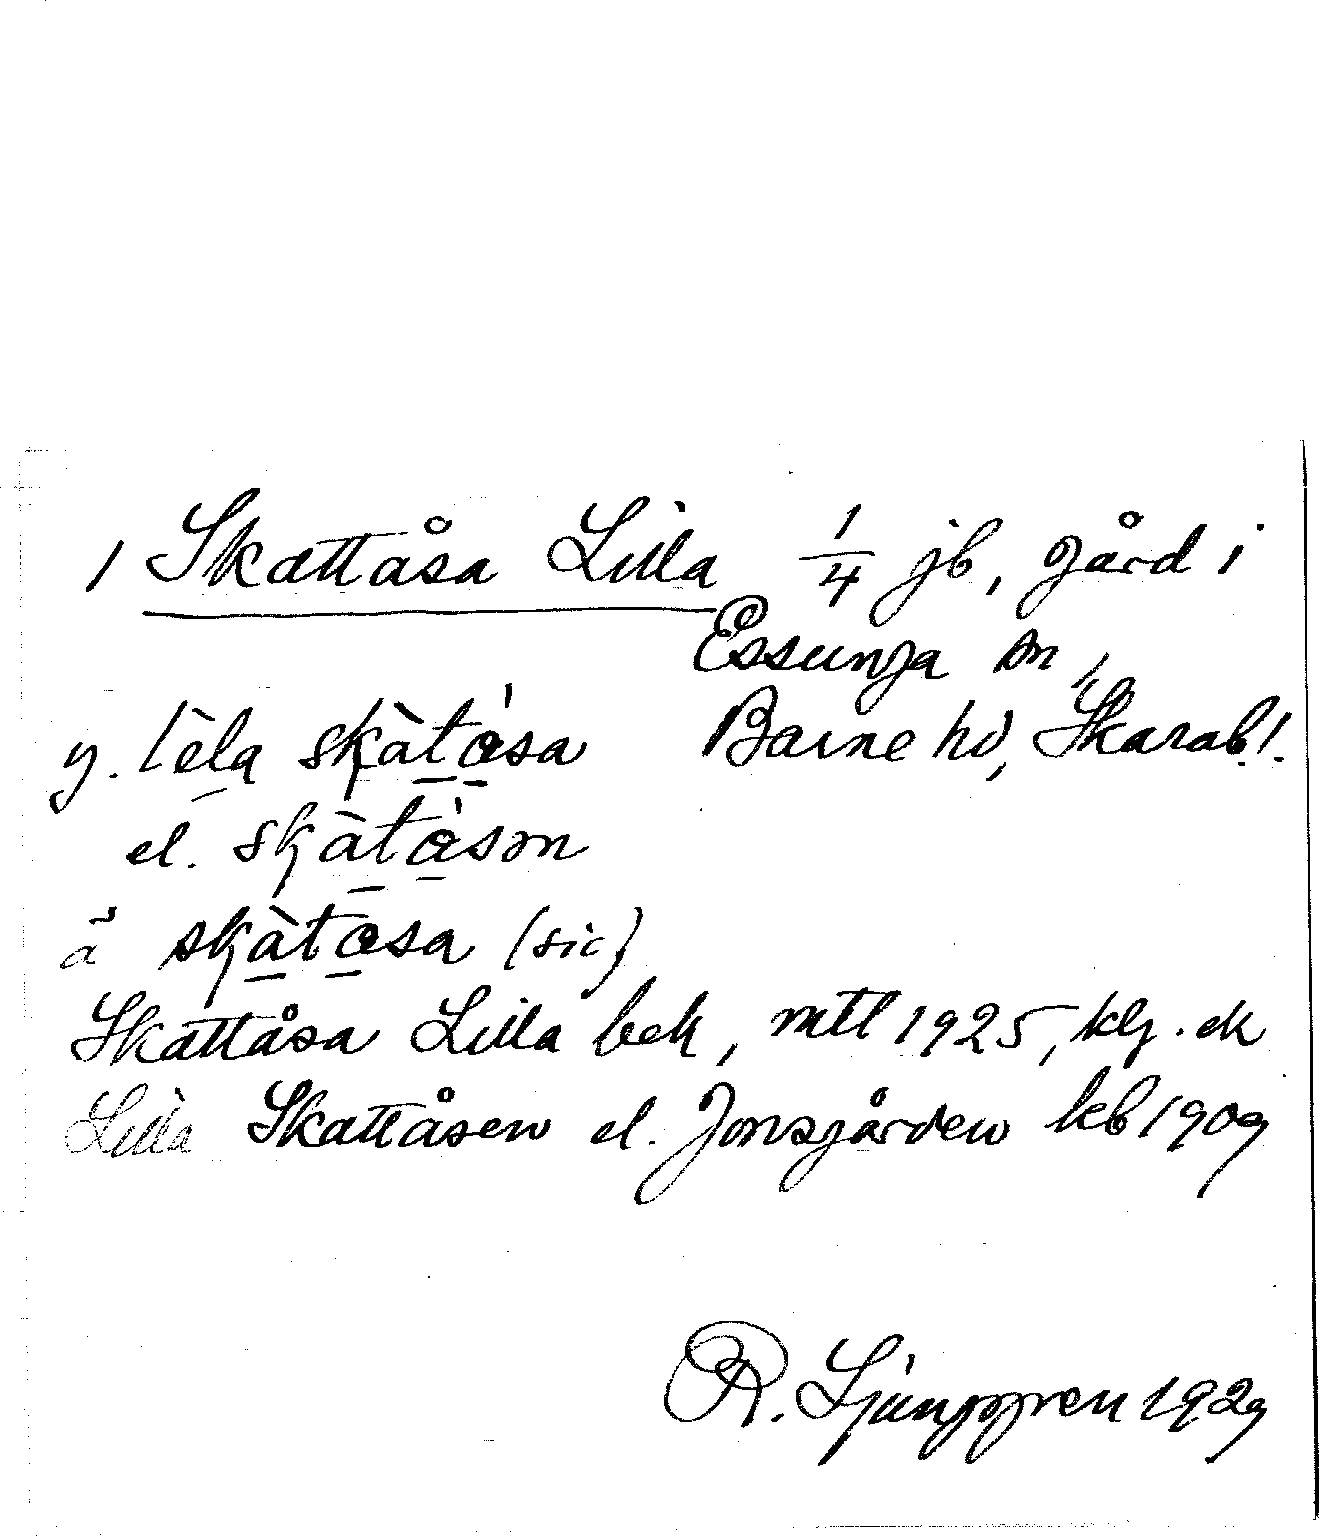 1 Skattåsa Lilla 1/4 jb, gård i
Essunga sn,
y. lèla skàtåsa Barne hd, Skarab.l.
el. skàtåsən
ä skàtåsa (sic)
Skattåsa Lilla bek, mtl 1925, klg. ek
Lilla Skattåsen el. Jonsgården kb 1909
R. Ljunggren 1929